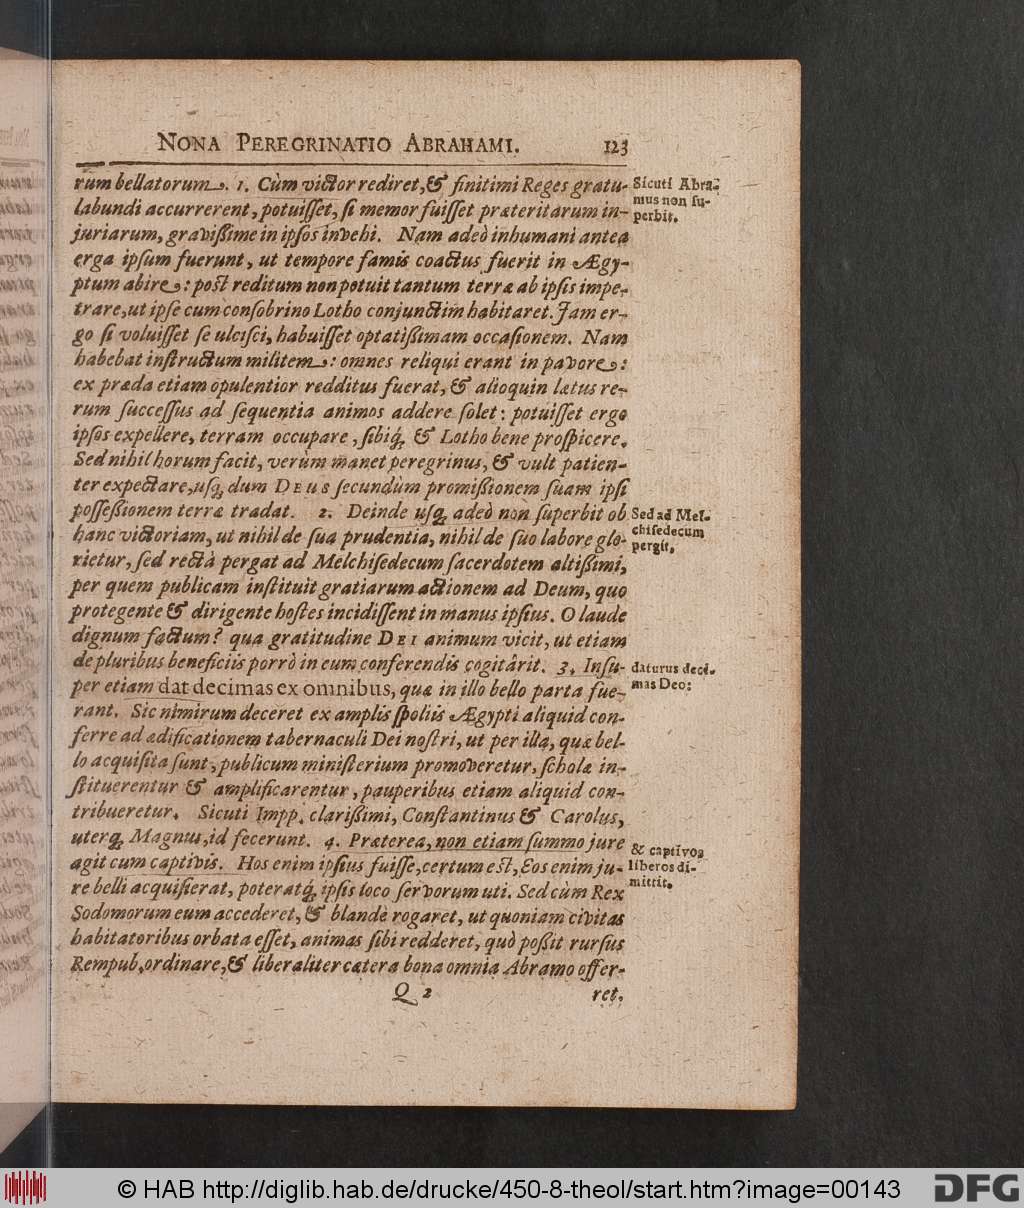 NONA PEREGRINATIO ABRAHAMI. 123
rum bellatorum. 1. Cùm victor rediret, & finitimi Reges gratu-
Sicuti Abra-
mus non su-
perbit.
labundi accurrerent, potuisset, si memor fuisset præteritarum in-
juriarum, gravißime in ipsos invehi. Nam adeò inhumani antea
erga ipsum fuerunt, ut tempore famis coactus fuerit in Ægy-
ptum abire: post reditum non potuit tantum terræ ab ipsis impe-
trare, ut ipse cum consobrino Lotho conjunctim habitaret. Jam er-
go si voluisset se ulcisci, habuisset optatißimam occasionem. Nam
habebat instructum militem: omnes reliqui erant in pavore:
ex præda etiam opulentior redditus fuerat, & alioquin lætus re-
rum successus ad sequentia animos addere solet: potuisset ergo
ipsos expellere, terram occupare, sibiq́; & Lotho bene prospicere.
Sed nihil horum facit, verùm manet peregrinus, & vult patien-
ter expectare, usq; dum DEUS secundùm promißionem suam ipsi
possessionem terræ tradat. 2. Deinde usq; adeò non superbit ob
Sed ad Mel-
chisedecum
pergit.
hanc victoriam, ut nihil de sua prudentia, nihil de suo labore glo-
rietur, sed rectà pergat ad Melchisedecum sacerdotem altißimi,
per quem publicam instituit gratiarum actionem ad Deum, quo
protegente & dirigente hostes incidissent in manus ipsius. O laude
dignum factum? qua gratitudine DEI animum vicit, ut etiam
de pluribus beneficiis porrò in eum conferendis cogitârit. 3. Insu-
daturus deci-
mas Deo:
per etiam dat decimas ex omnibus, quæ in illo bello parta fue-
rant. Sic nimirum deceret ex amplis spoliis Ægypti aliquid con-
ferre ad ædificationem tabernaculi Dei nostri, ut per illa, quæ bel-
lo acquisita sunt, publicum ministerium promoveretur, scholæ in-
stituerentur & amplificarentur, pauperibus etiam aliquid con-
tribueretur. Sicuti Impp. clarißimi, Constantinus & Carolus,
uterq; Magnus, id fecerunt. 4. Præterea, non etiam summo jure
& captivos
liberos di-
mittit.
agit cum captivis. Hos enim ipsius fuisse, certum est, Eos enim ju-
re belli acquisierat, poteratq́; ipsis loco servorum uti. Sed cùm Rex
Sodomorum eum accederet, & blandè rogaret, ut quoniam civitas
habitatoribus orbata esset, animas sibi redderet, quò poßit rursus
Rempub. ordinare, & liberaliter cætera bona omnia Abramo offer-
Q 2 ret.
© HAB http://diglib.hab.de/drucke/450-8-theol/start.htm?image=00143
DFG